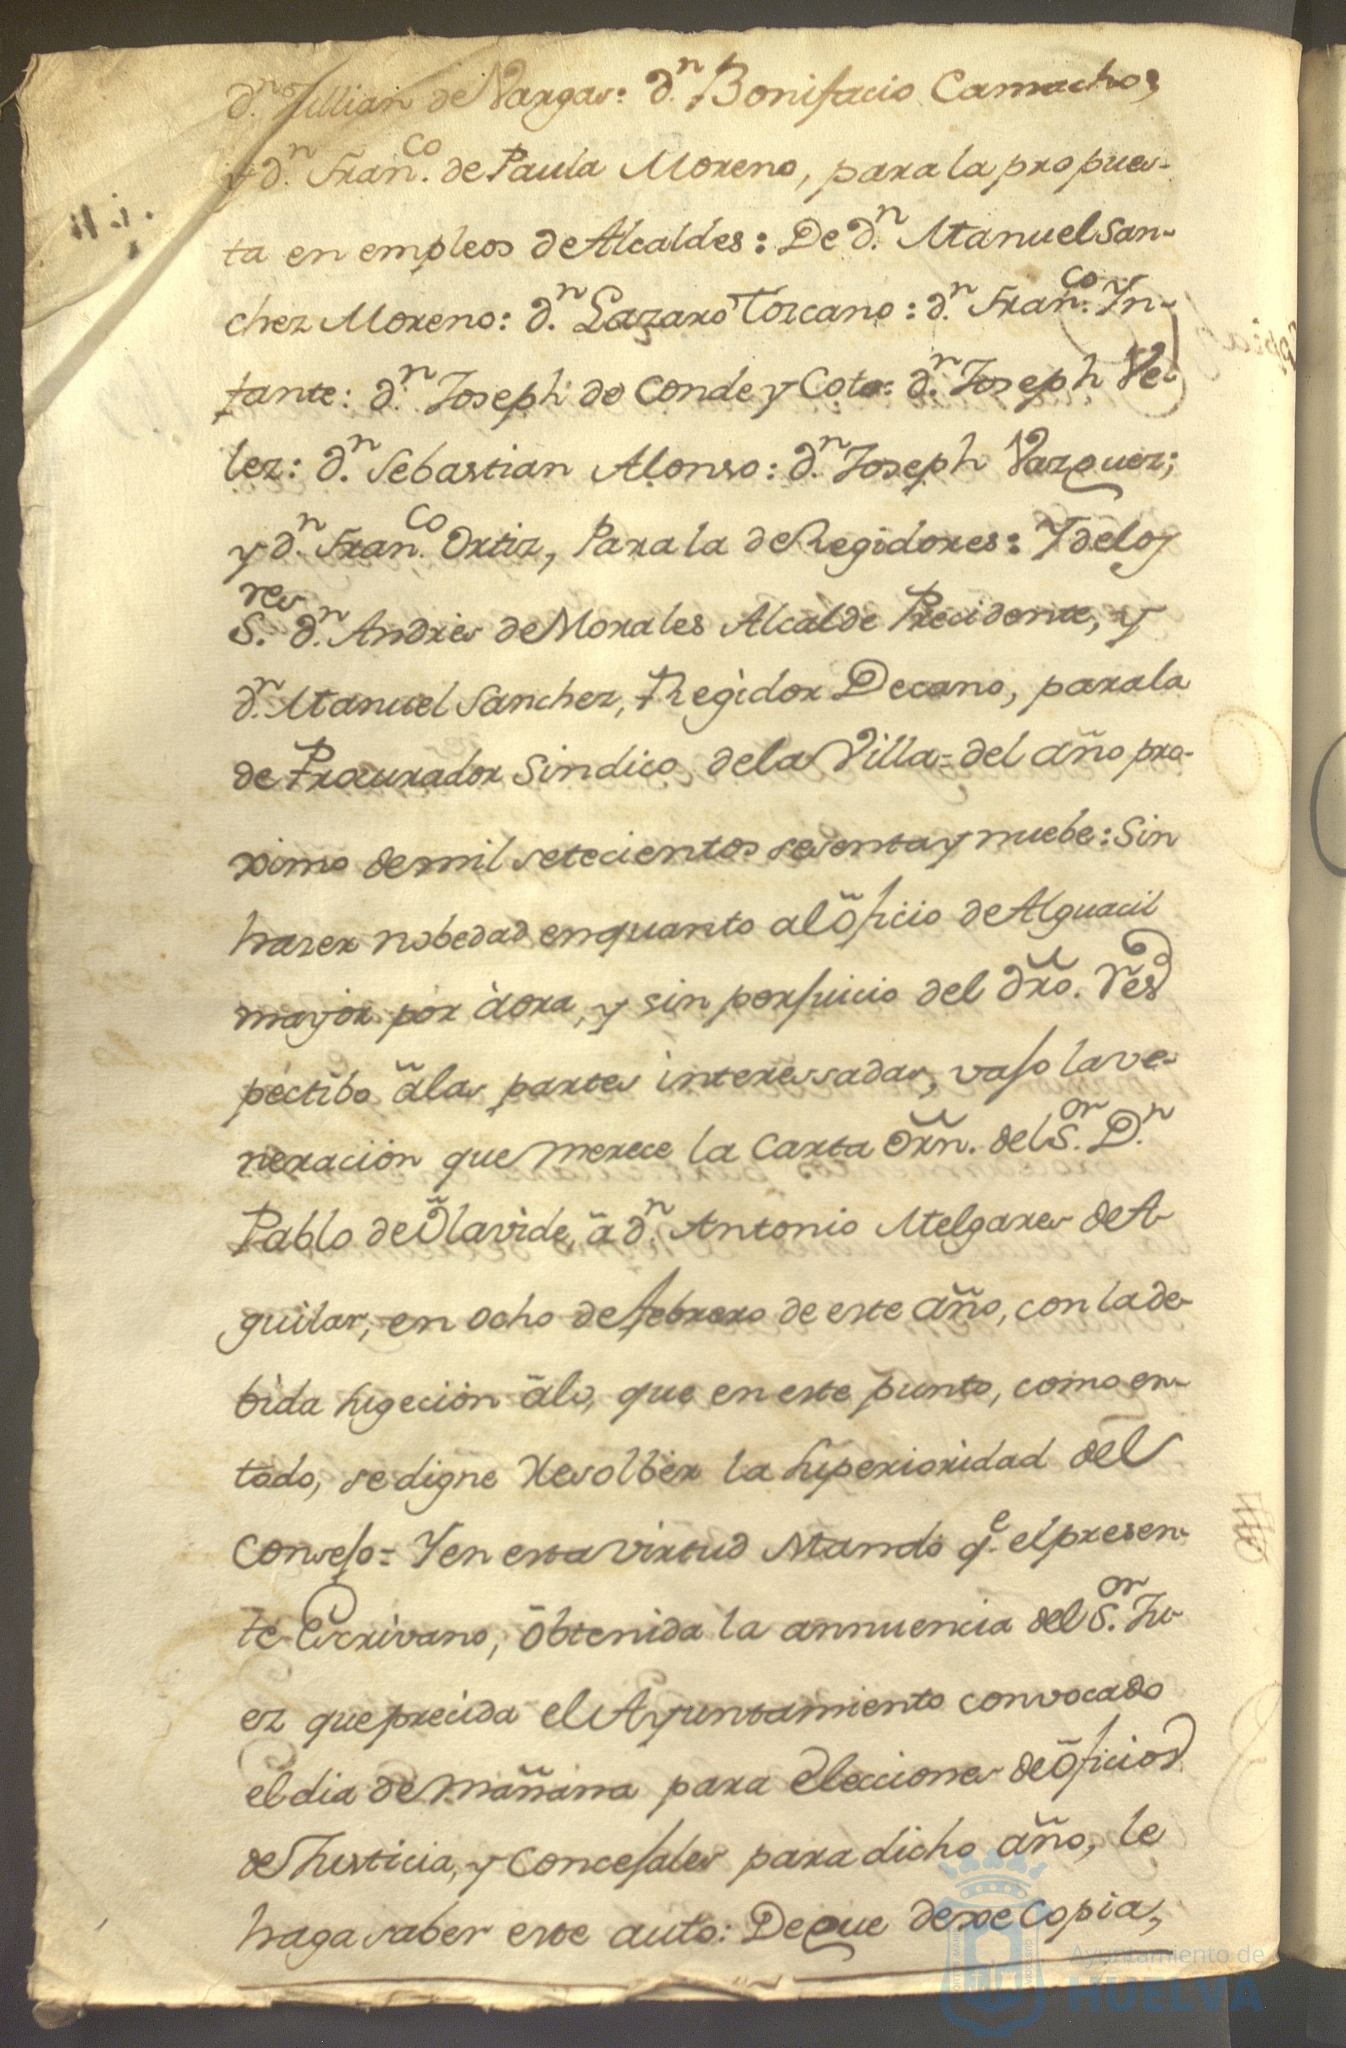 d.n Jullian de Vargas: d.n Bonifacio Camacho;
y d.n Fran.co de Paula Moreno, para la propues-
ta en empleos de Alcaldes: De d.n Manuel San-
chez Moreno: d.n Lazaro Toscano: d.n Fran.co In-
fante: d.n Joseph de Conde y Coto: d.n Joseph Ve-
lez: d.n Sebastian Alonso: d.n Joseph Vazquez;
y d.n Fran.co Ortiz, Para la de Regidores: Y de los
S.res d.n Andres de Morales Alcalde Precidente, y
d.n Manuel Sanchez, Regidor Decano, para la
de Procurador Sindico, de la Villa = del año pro-
ximo de mil setecientos sesenta y nuebe: Sin
hazer nobedad en quanto al õficio de Alguacil
mayor por àora, y sin perjuicio del dr̃o. Res
pectibo ã las partes interessadas, vajo la ve-
neracion que merece la Carta Orñ. del S.or D.n
Pablo de Õlavide, ã d.n Antonio Melgares de A-
guilar, en ocho de febrero de este año, con la de-
bida sugecion ã lo, que en este punto, como en
todo, se digne Resolber la superioridad del
Consejo = Y en esta virtud Mando q.e el presen-
te Escrivano, õbtenida la annuencia del S.or Ju-
ez que precida el Ayuntamiento convocado
el dia de mañana para Elecciones de õficios
de Justicia, y Concejales para dicho año, le
haga saber este auto: De que dexe Copia,
Ayuntamiento de
HUELVA